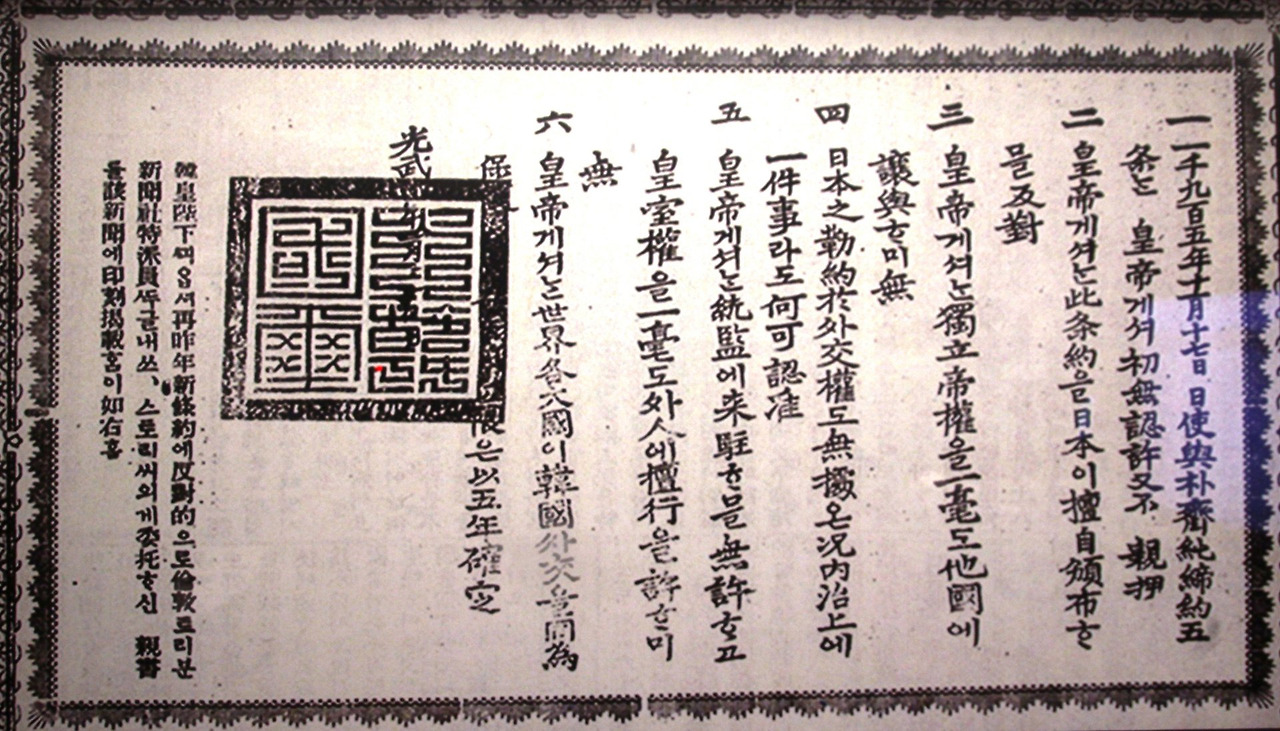 一 一千九百五年十一月十七日 日使與朴齊純締約五
条는 皇帝게셔 初無認許又不 親押
二 皇帝게셔는 此条約을 日本이 擅自頒布하
믈 反對
三 皇帝게셔는 獨立帝權을 一毫도 他國에
讓與ᄒᆞ미 無
四 日本之勒約於外交權도 無據온 况內治上에
一件事라도 何可認准
五 皇帝게셔는 統監에 来駐ᄒᆞ믈 無許ᄒᆞ고
皇室權을 一毫도 外人에 擅行을 許ᄒᆞ미
無
六 皇帝게셔는 世界各大國이 韓國外交을 同為
保 限은 以五年確定
光武
韓皇陛下ᄭᅴ옵셔 再昨年新條約에 反對的으로 倫敦토리분
新聞社特派員 ᄯᅳ글내쓰、스토리써의게 委托ᄒᆞ신 親書
를 該新聞에 印刻揭載홈이 如右홈